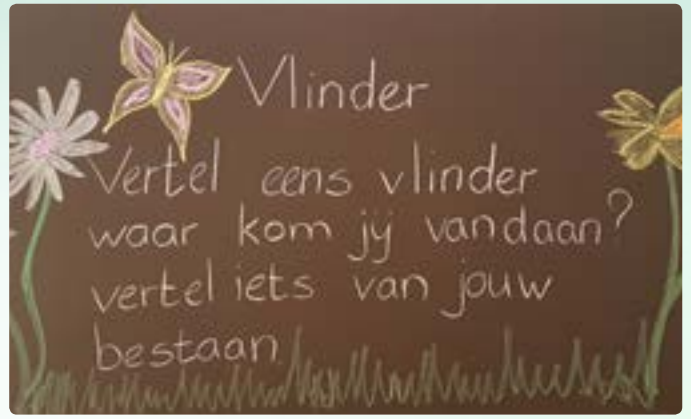 Vlinder
Vertel eens vlinder
waar kom jij vandaan?
vertel iets van jouw
bestaan